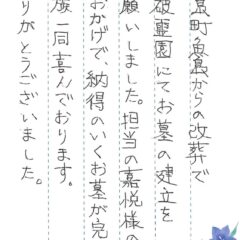 島町魚島からの改葬で
破霊園にてお墓の建立を
願いしました。担当の嘉悦様の
おかげで、納得のいくお墓が完
族一同喜んでおります。
りがとうございました。